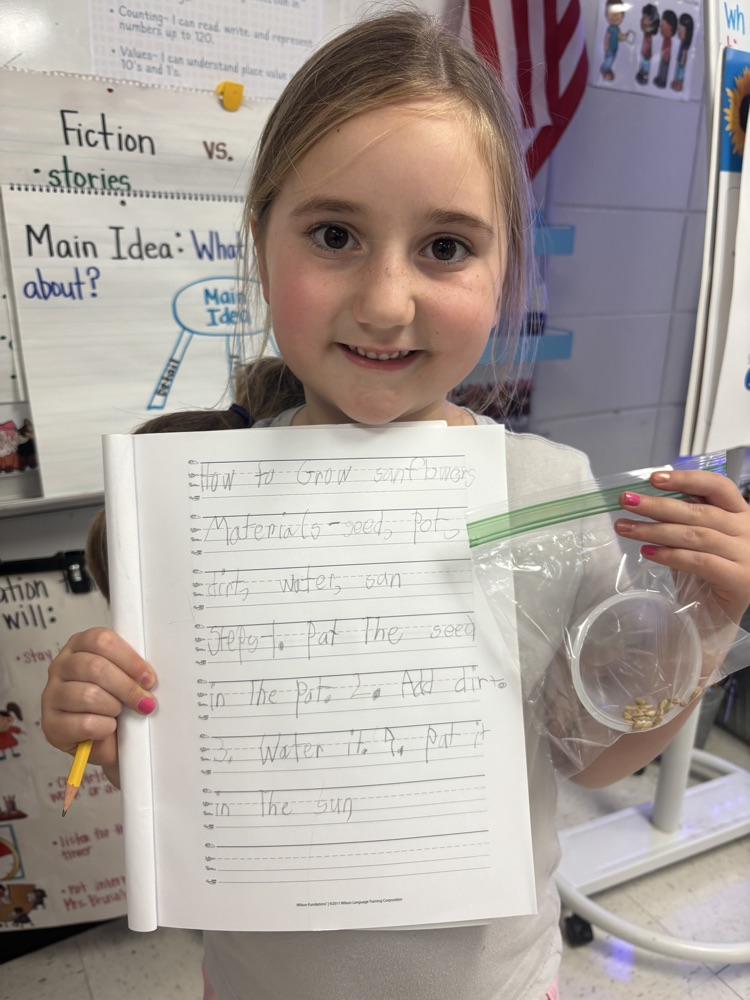 • Counting- I can read, write, and represent
numbers up to 120.
• Values- I can understand place value
10's and 1's.
Fiction vs.
• stories
Main Idea: What
about?
Main
Idea
detail
Wh
will:
• stay
• listen for the
timer
• not
Mrs.
How to Grow sanflowers
Materials-seed, Pot,
dirt, water, san
Steps-1. Pat The seed
in The Pot. 2. Add dirt
3. Water it. 4. Pat it
in The sun
Wilson Fundations® | ©2011 Wilson Language Training Corporation